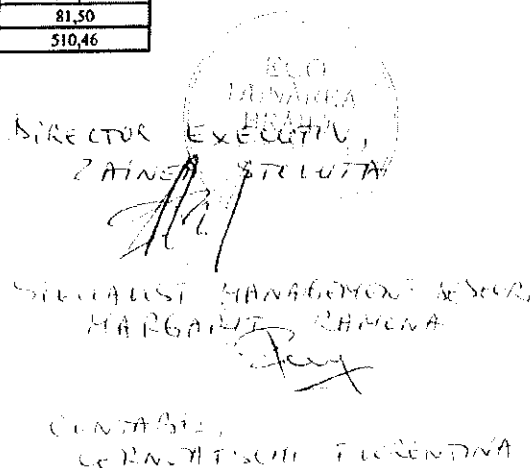 81,50
510,46
ECO
DUNAREA
BRAILA
DIRECTOR EXECUTIV,
ZAINEA STELUTA
SPECIALIST MANAGEMENT DESEURI
MARGARIT RAMONA
CONTABIL,
FLORENTINA